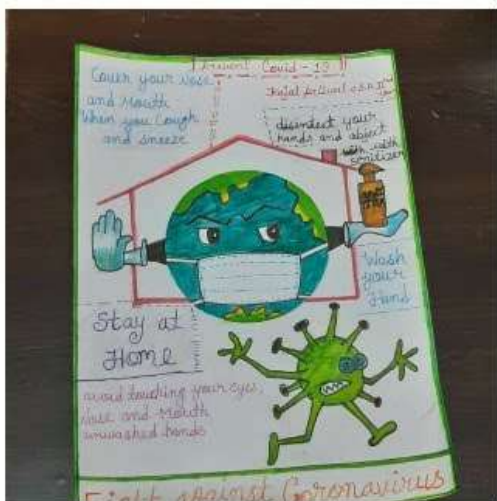 Prevent Covid-19
Cover your nose
and Mouth
When you Cough
and sneeze
disinfect your
hands and object
with
sanitizer
Wash
your
Hand
Stay at
Home
avoid touching your eyes,
nose and Mouth
unwashed hands
Fight against Coronavirus